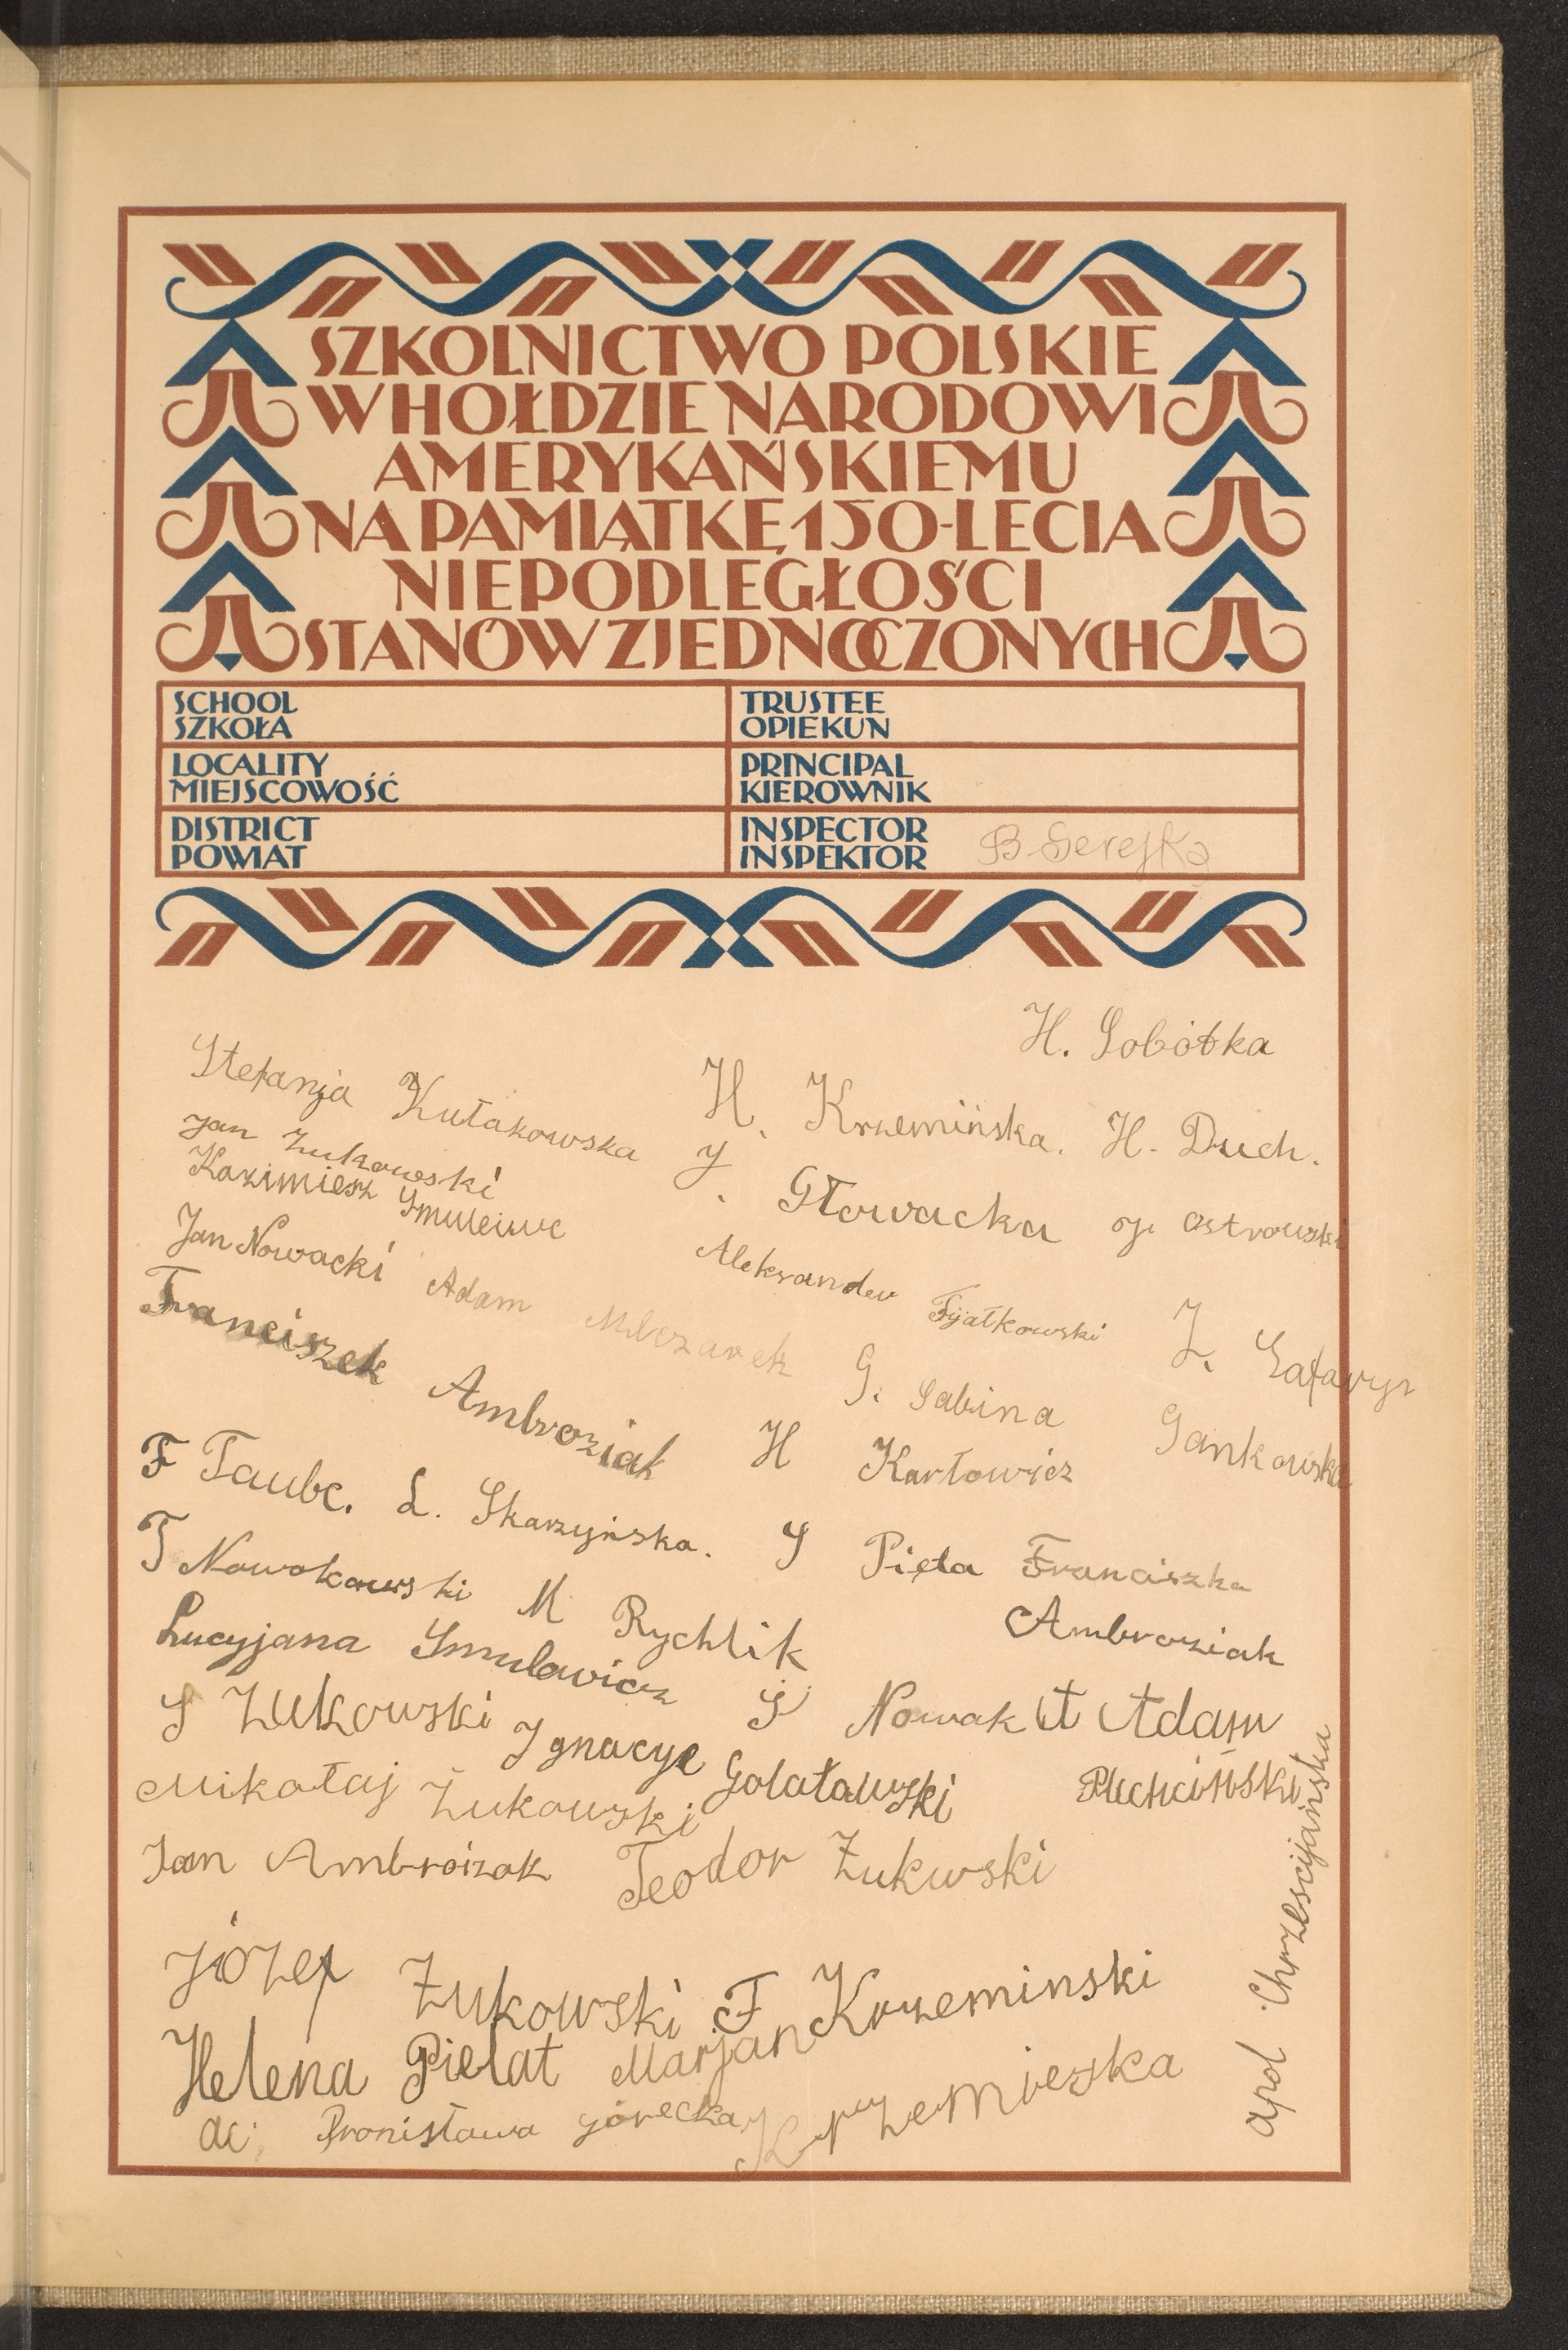 SZKOLNICTWO POLSKIE
W HOŁDZIE NARODOWI
AMERYKAŃSKIEMU
NA PAMIĄTKĘ 150-LECIA
NIEPODLEGŁOŚCI
STANÓW ZJEDNOCZONYCH
SCHOOL
SZKOŁA
TRUSTEE
OPIEKUN
LOCALITY
MIEJSCOWOŚĆ
PRINCIPAL
KIEROWNIK
DISTRICT
POWIAT
INSPECTOR
INSPEKTOR
B
H. Sobótka
Stefanja Kułakowska
H. Krzemińska. H. Duch.
Jan Żukowski
J. Głowacka
Ostrowski
Kazimiesz
Jan Nowacki
Aleksander Fijałkowski
Adam Mleczarek
Z.
Franciszek Ambroziak
G. Sabina Gankowska
H Karłowicz
F Taube. L. Skarzyńska.
S Pięta Franciszka
Ambroziak
T Nowakowski M Rychlik
Lucyjana Smulawicz
S Nowak A Adam
S Żukowski Ignacye Golatowski
Mikołaj Żukowski
Jan Ambroizak Teodor Żukwski
Józef Żukowski F Krzeminski
Helena Pielat Marjan
Bronisława Górecka
Krzemieska
Chrzescijańska